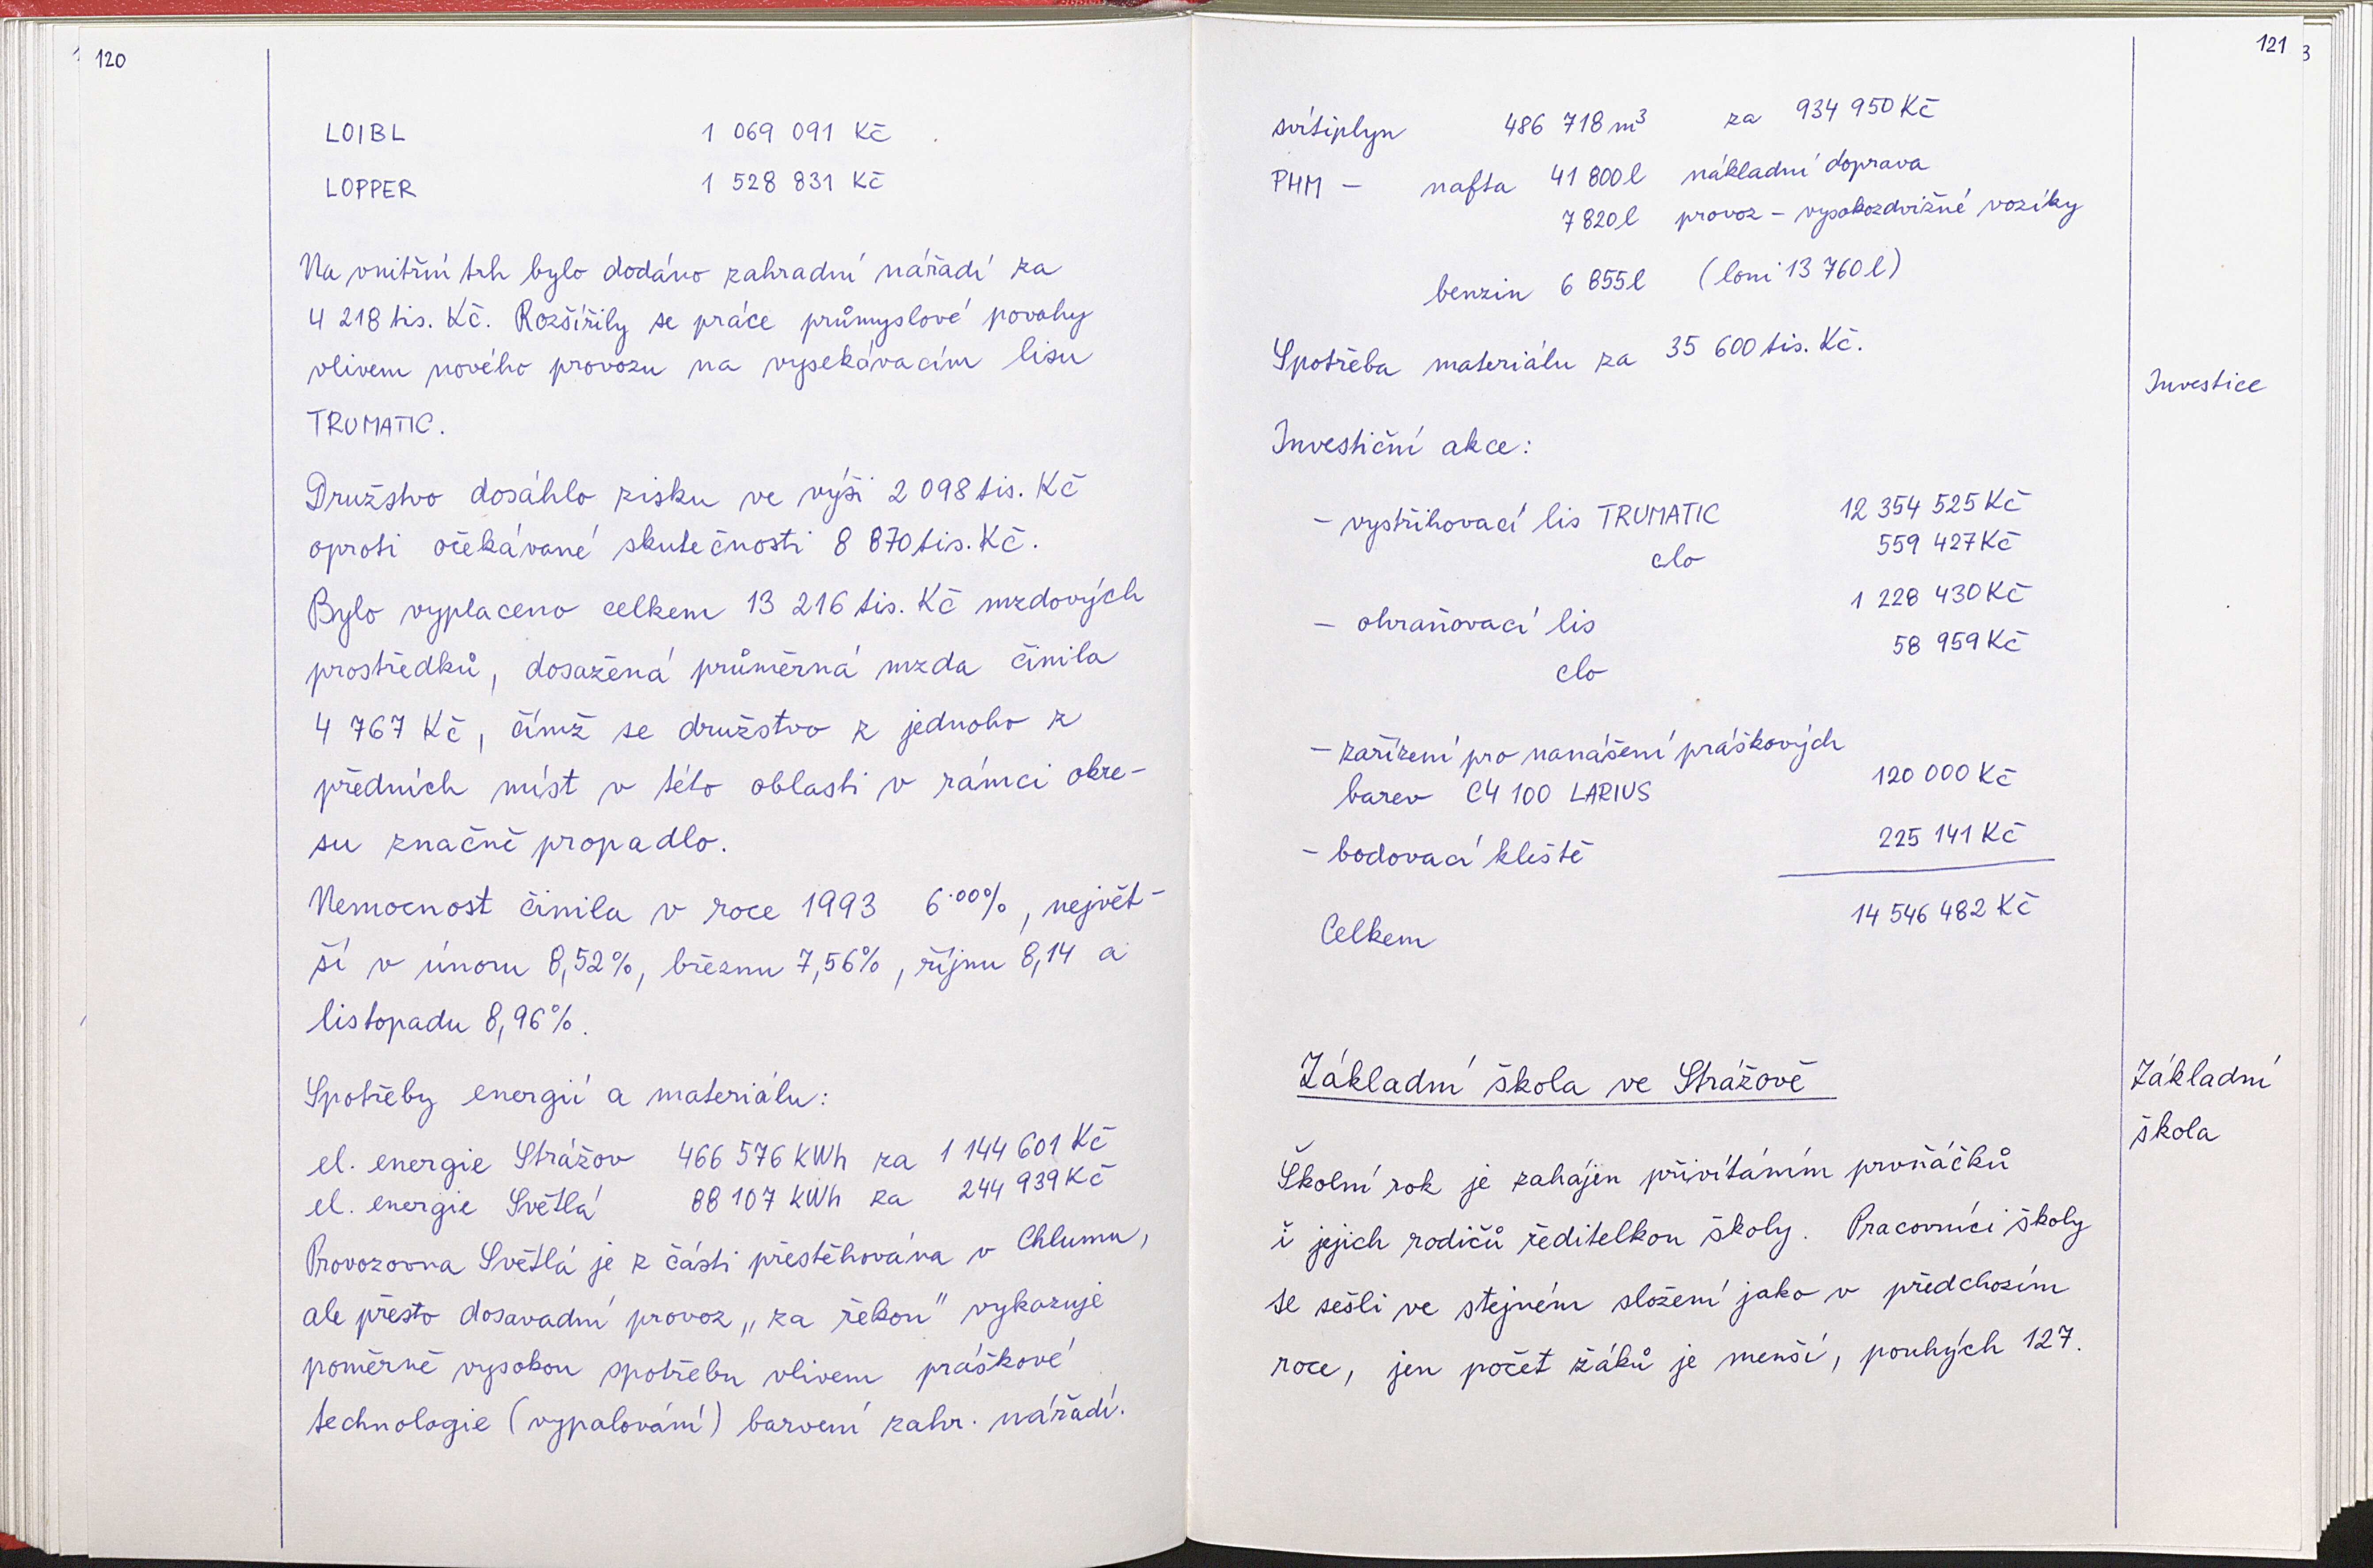 120
LOIBL 1 069 091 Kč
LOPPER 1 528 831 Kč
Na vnitřní trh bylo dodáno zahradní nářadí za
4 218 tis. Kč. Rozšířily se práce průmyslové povahy
vlivem nového provozu na vysekávacím lisu
TRUMATIC.
Družstvo dosáhlo zisku ve výši 2 098 tis. Kč
oproti očekávané skutečnosti 8 870 tis. Kč.
Bylo vyplaceno celkem 13 216 tis. Kč mzdových
prostředků, dosažená průměrná mzda činila
4 767 Kč, čímž se družstvo z jednoho z
předních míst v této oblasti v rámci okre-
su značně propadlo.
Nemocnost činila v roce 1993 6.00%, největ-
ší v únoru 8,52%, březnu 7,56%, říjnu 8,14 a
listopadu 8,96%.
Spotřeby energií a materiálu:
el. energie Strážov 466 576 kWh za 1 144 601 Kč
el. energie Světlá 88 107 kWh za 244 939 Kč
Provozovna Světlá je z části přestěhována v Chlumu,
ale přesto dosavadní provoz „za řekou" vykazuje
poměrně vysokou spotřebu vlivem práškové
technologie (vypalování) barvení zahr. nářadí.
121
svítiplyn 486 718 m³ za 934 950 Kč
PHM – nafta 41 800 l nákladní doprava
7 820 l provoz – vysokozdvižné vozíky
benzin 6 855 l (loni 13 760 l)
Spotřeba materiálu za 35 600 tis. Kč.
Investice
Investiční akce:
– vystřihovací lis TRUMATIC 12 354 525 Kč
clo 559 427 Kč
– ohraňovací lis 1 228 430 Kč
clo 58 959 Kč
– zařízení pro nanášení práškových
barev C4 100 LARIUS 120 000 Kč
– bodovací kleště 225 141 Kč
Celkem 14 546 482 Kč
Základní škola ve Strážově
Základní
škola
Školní rok je zahájen přivítáním prvňáčků
i jejich rodičů ředitelkou školy. Pracovníci školy
se sešli ve stejném složení jako v předchozím
roce, jen počet žáků je menší, pouhých 127.